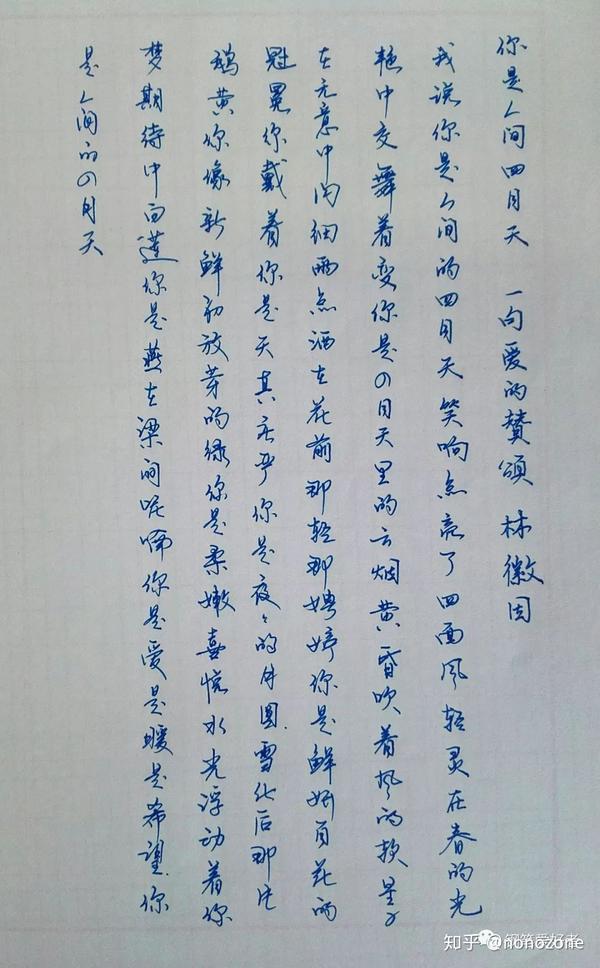 你是人间四月天 一句爱的赞颂 林徽因
我说你是人间的四月天笑响点亮了四面风轻灵在春的光
艳中交舞着变你是四月天里的云烟黄昏吹着风的软星子
在无意中闪细雨点洒在花前那轻那娉婷你是鲜妍百花的
冠冕你戴着你是天真庄严你是夜夜的月圆雪化后那片
鹅黄你像新鲜初放芽的绿你是柔嫩喜悦水光浮动着你
梦期待中白莲你是燕在梁间呢喃你是爱是暖是希望你
是人间的四月天
知乎 @nonozone
钢笔爱好者